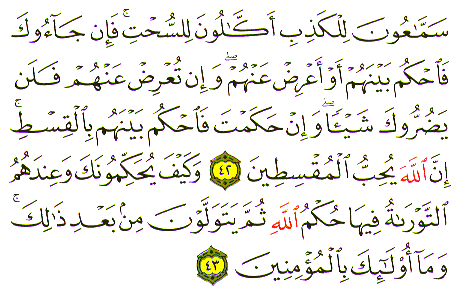 سَمَّٰعُونَ لِلْكَذِبِ أَكَّٰلُونَ لِلسُّحْتِ ۚ فَإِن جَآءُوكَ
فَٱحْكُم بَيْنَهُمْ أَوْ أَعْرِضْ عَنْهُمْ ۖ وَإِن تُعْرِضْ عَنْهُمْ فَلَن
يَضُرُّوكَ شَيْـًٔا ۖ وَإِنْ حَكَمْتَ فَٱحْكُم بَيْنَهُم بِٱلْقِسْطِ ۚ
إِنَّ ٱللَّهَ يُحِبُّ ٱلْمُقْسِطِينَ ٤٢ وَكَيْفَ يُحَكِّمُونَكَ وَعِندَهُمُ
ٱلتَّوْرَىٰةُ فِيهَا حُكْمُ ٱللَّهِ ثُمَّ يَتَوَلَّوْنَ مِنۢ بَعْدِ ذَٰلِكَ ۚ
وَمَآ أُو۟لَٰٓئِكَ بِٱلْمُؤْمِنِينَ ٤٣